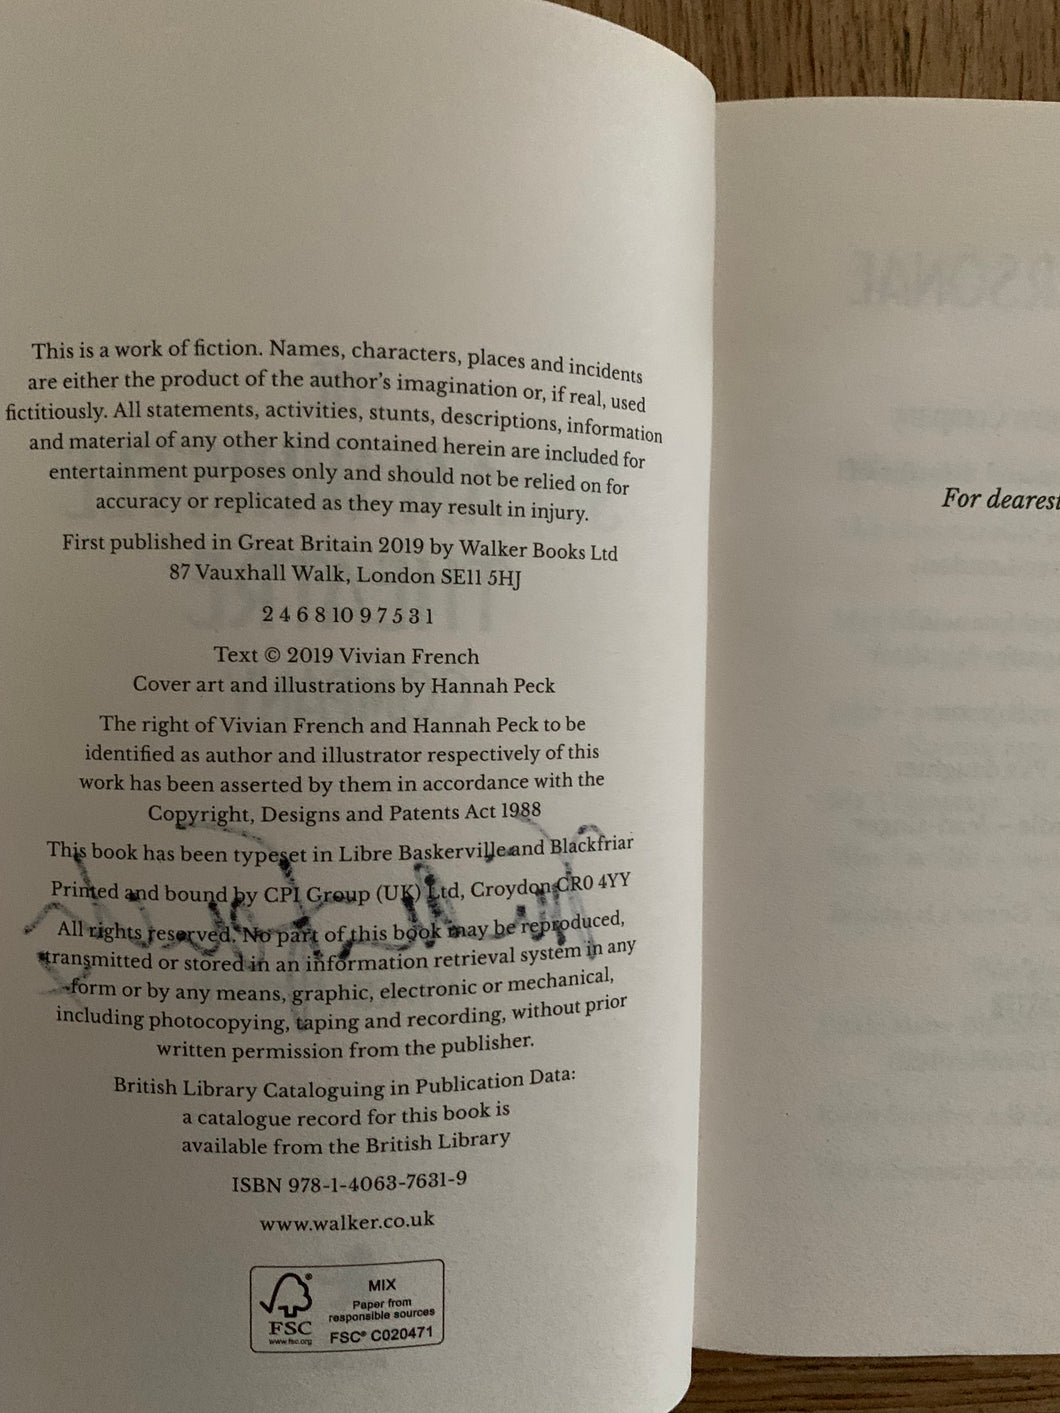 This is a work of fiction. Names, characters, places and incidents
are either the product of the author's imagination or, if real, used
fictitiously. All statements, activities, stunts, descriptions, information
and material of any other kind contained herein are included for
entertainment purposes only and should not be relied on for
accuracy or replicated as they may result in injury.
First published in Great Britain 2019 by Walker Books Ltd
87 Vauxhall Walk, London SE11 5HJ
2 4 6 8 10 9 7 5 3 1
Text © 2019 Vivian French
Cover art and illustrations by Hannah Peck
The right of Vivian French and Hannah Peck to be
identified as author and illustrator respectively of this
work has been asserted by them in accordance with the
Copyright, Designs and Patents Act 1988
This book has been typeset in Libre Baskerville and Blackfriar
Printed and bound by CPI Group (UK) Ltd, Croydon CR0 4YY
All rights reserved. No part of this book may be reproduced,
transmitted or stored in an information retrieval system in any
form or by any means, graphic, electronic or mechanical,
including photocopying, taping and recording, without prior
written permission from the publisher.
British Library Cataloguing in Publication Data:
a catalogue record for this book is
available from the British Library
ISBN 978-1-4063-7631-9
www.walker.co.uk
FSC
www.fsc.org
MIX
Paper from
responsible sources
FSC® C020471
For dearest